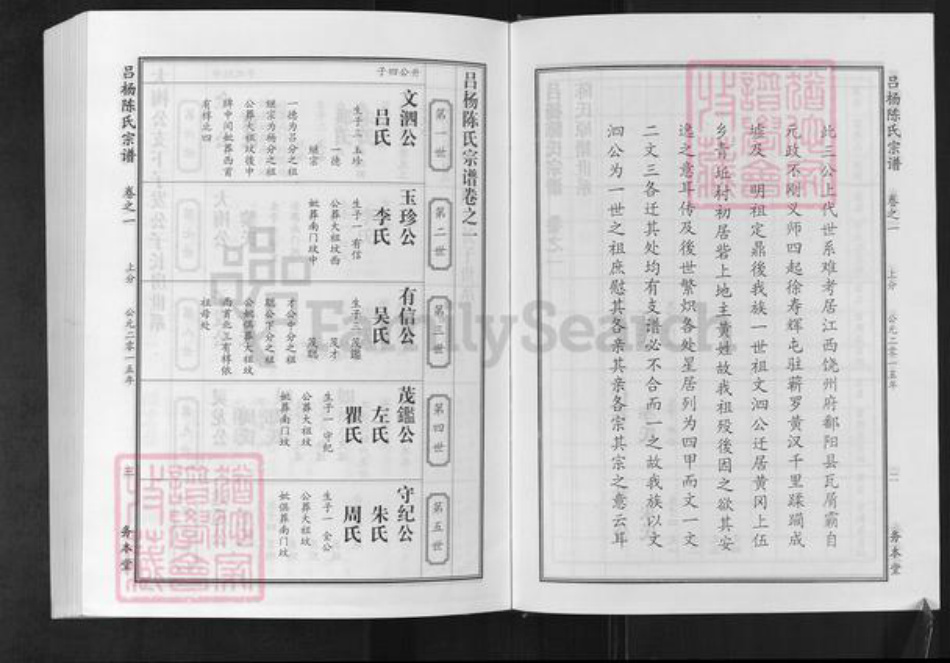 吕杨陈氏宗谱
卷之一
上分
公元二零一五年
二
务本堂
此三公上代世系难考居江西饶州府鄱阳县瓦屑霸自
元政不刚义师四起徐寿辉屯驻蕲罗黄汉千里蹂躏成
墟及 明祖定鼎後我族一世祖文泗公迁居黄冈上伍
乡青垃村初居砦上地主黄姓故我祖殁後因之欲其安
逸之意耳传及後世繁炽各处星居列为四甲而文一文
二文三各迁其处均有支谱必不合而一之故我族以文
泗公为一世之祖庶慰其各亲其亲各宗其宗之意云耳
吕杨陈氏宗谱卷之一
第一世
升公四子
文泗公
吕氏
生子二 玉珍
一德
继宗
一德为吕分之祖
继宗为杨分之祖
公葬大祖坟後中
碑中间妣葬西首
有椁北四
第二世
玉珍公
李氏
生子一 有信
公葬大祖坟西
妣葬南门坟中
第三世
有信公
吴氏
生子三 茂鑑
茂才
茂聪
才公中分之祖
聪公下分之祖
公妣俱葬大祖坟
西首北三有椁依
祖母处
第四世
茂鑑公
左氏
瞿氏
生子一 守纪
公葬大祖坟
妣葬南门坟
第五世
守纪公
朱氏
周氏
生子一 全公
公葬大祖坟
妣俱葬南门坟
吕杨陈氏宗谱
卷之一
上分
公元二零一五年
三
务本堂
FamilySearch